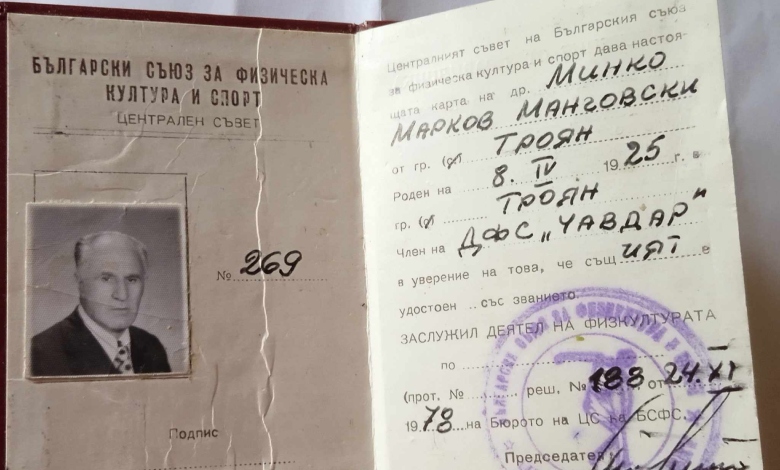 БЪЛГАРСКИ СЪЮЗ ЗА ФИЗИЧЕСКА
КУЛТУРА И СПОРТ
ЦЕНТРАЛЕН СЪВЕТ
№ 269
Подпис
Централният съвет на Българския съюз
за физическа култура и спорт дава настоя-
щата карта на др. МИНКО
МАРКОВ МАНГОВСКИ
от гр. (с) ТРОЯН
Роден на 8. IV 1925 г. в
гр. (с) ТРОЯН
Член на ДФС „ЧАВДАР"
в уверение на това, че същият е
удостоен със званието
ЗАСЛУЖИЛ ДЕЯТЕЛ НА ФИЗКУЛТУРАТА
по
(прот. № реш. № 188 от 24. XI
1978 на Бюрото на ЦС на БСФС.
Председател: